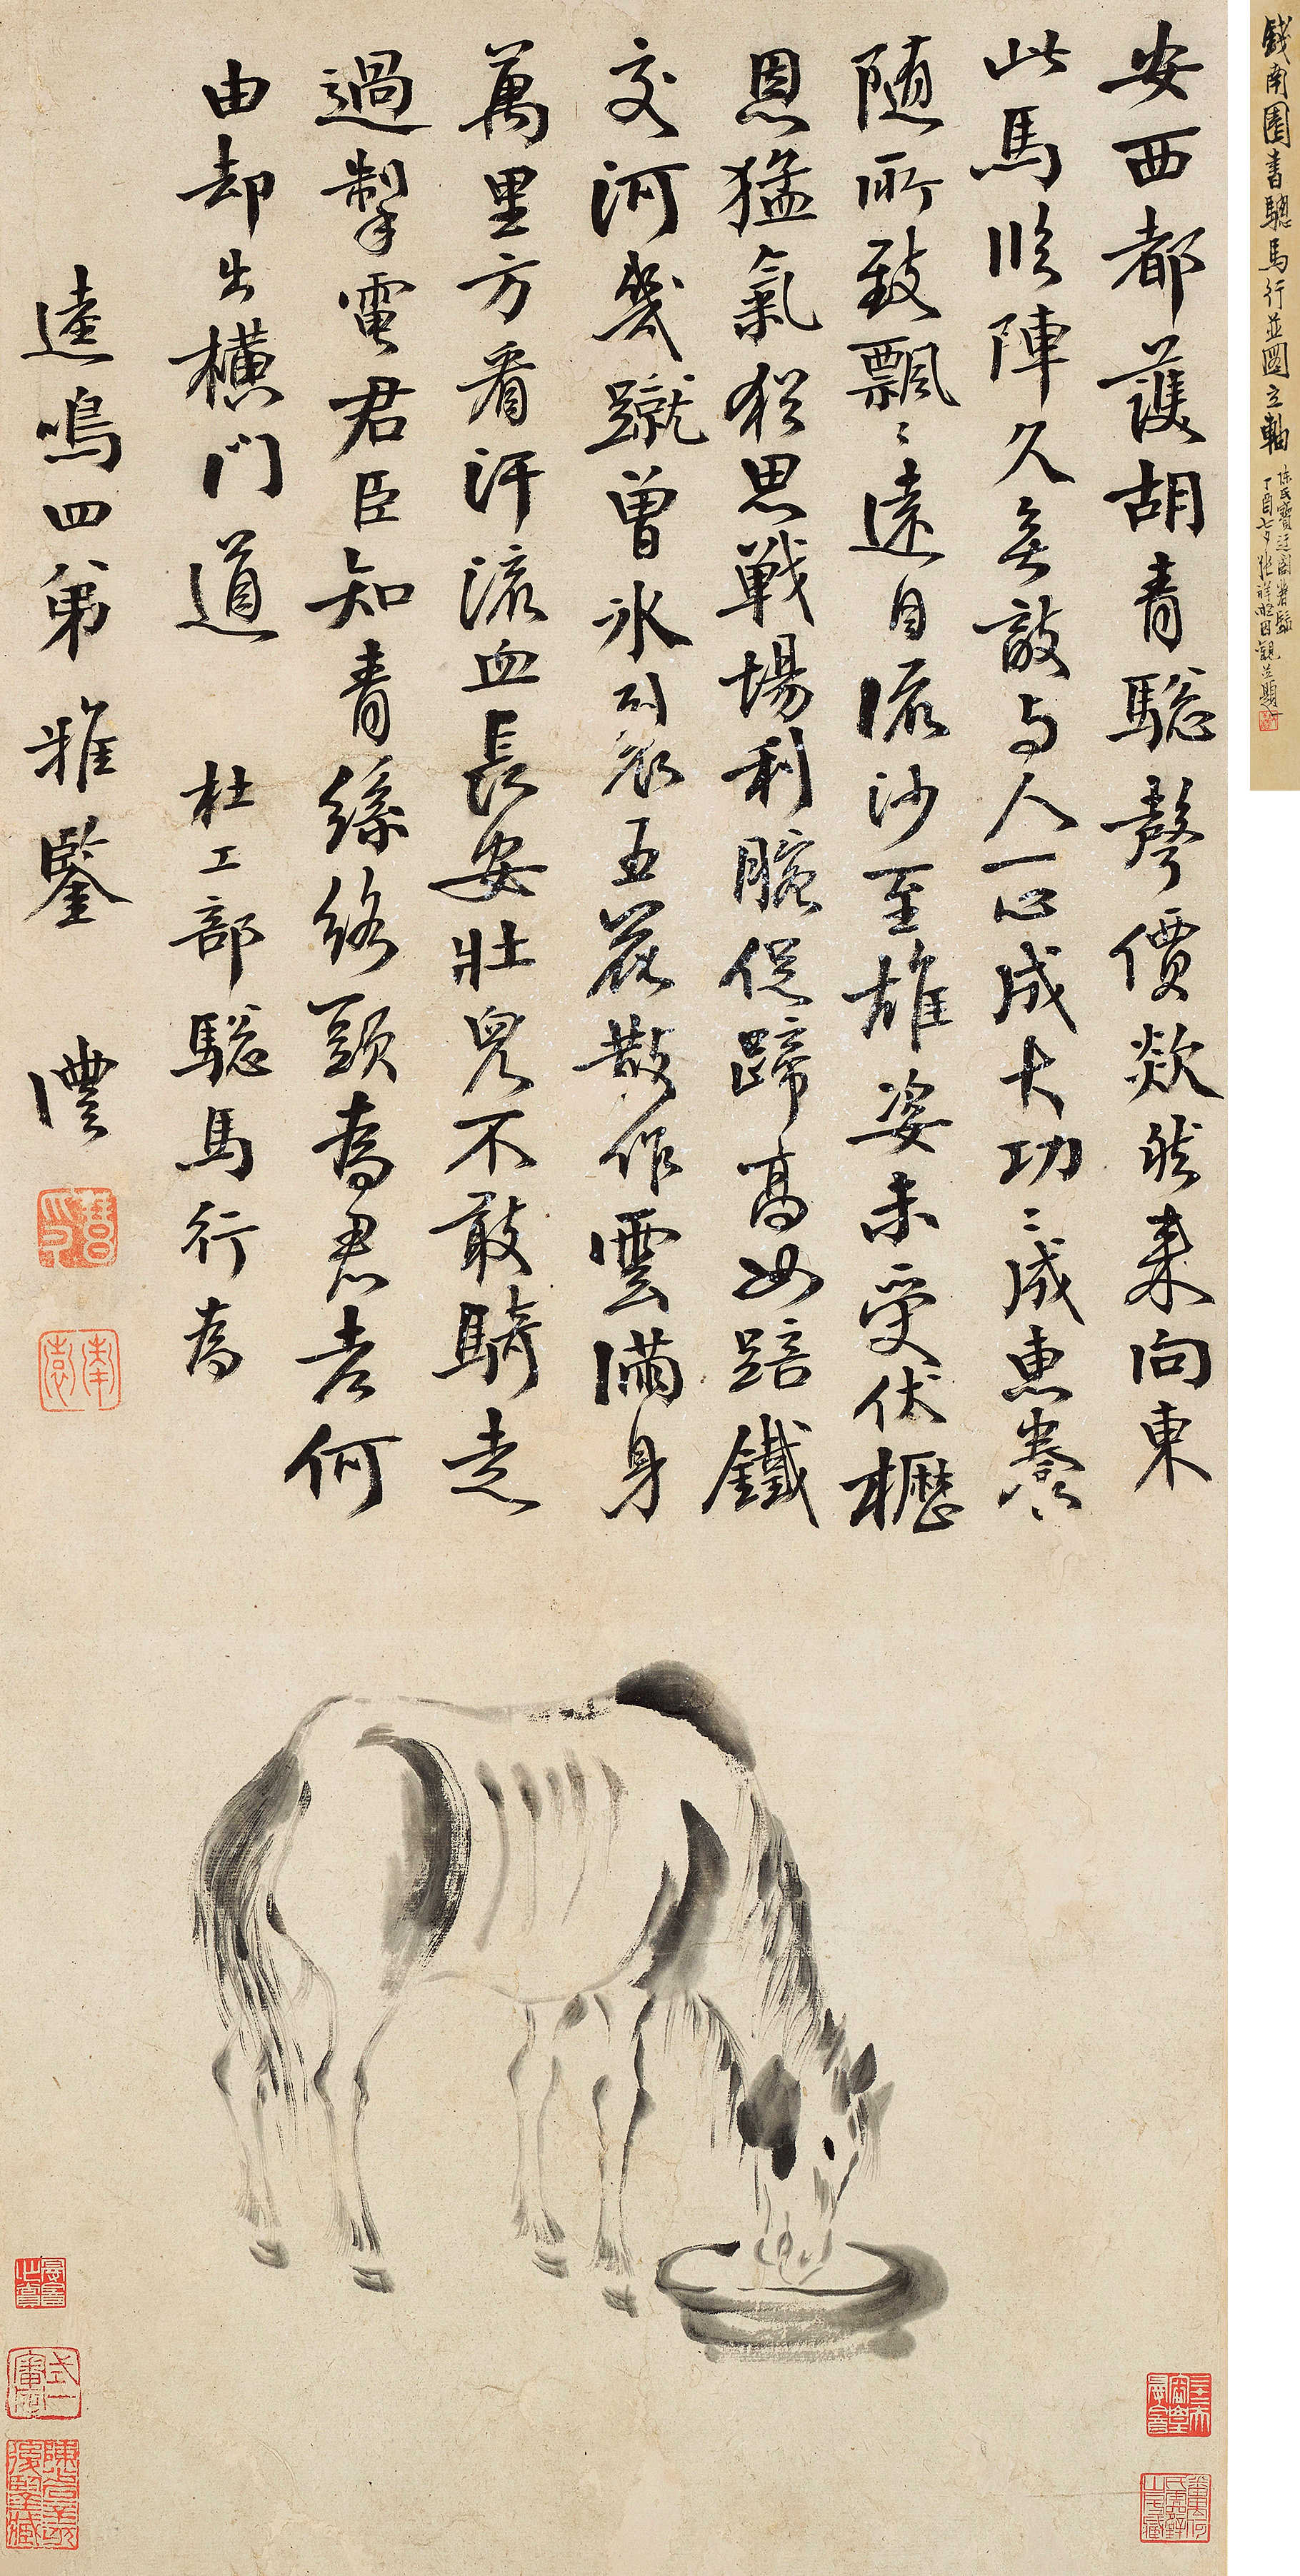 錢南園書驄馬行並圖立軸
陳氏寶迂閣舊藏
丁酉七夕張祥凝因觀並題
安西都護胡青驄聲價欻然来向東
此馬臨陣久無敵与人一心成大功〻成惠養
随所致飄〻遠自流沙至雄姿未受伏櫪
恩猛氣猶思戰場利腕促蹄高如踣鐵
交河幾蹴曾冰裂五花散作雲滿身
萬里方看汗流血長安壯兒不敢騎走
過掣電君臣知青絲絡頭為君老何
由却出橫門道 杜工部驄馬行為
逵鳴四弟雅鑒 灃
南園